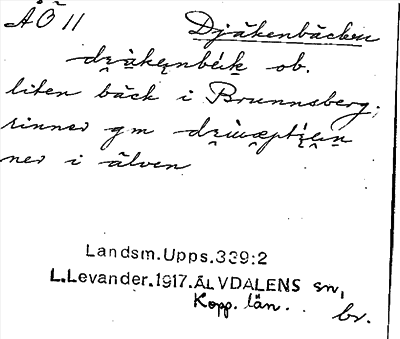 ÅÖ 11 Djäkenbäcken
ob.
liten bäck i Brunnsberg;
rinner gm
ner i älven
Landsm.Upps.339:2
L.Levander.1917.ÄLVDALENS sn,
Kopp. län.
br.